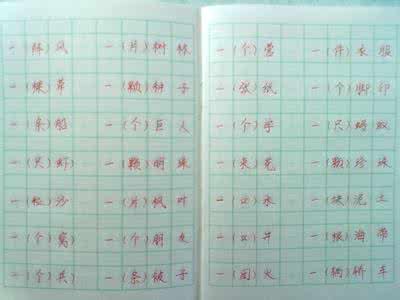 一(阵)风 一(片)树林
一(棵)草 一(颗)种子
一(条)船 一(个)巨人
一(只)虾 一(颗)明珠
一(粒)沙 一(片)枫叶
一(个)窝 一(个)朋友
一(个)兵 一(条)被子
一(个) 一(件)衣服
一(张)纸 一(个)脚印
一(个)字 一(只)蚂蚁
一(朵)花 一(颗)珍珠
一(口)水 一(块)泥土
一(口)井 一(根)海带
一(团)火 一(辆)轿车